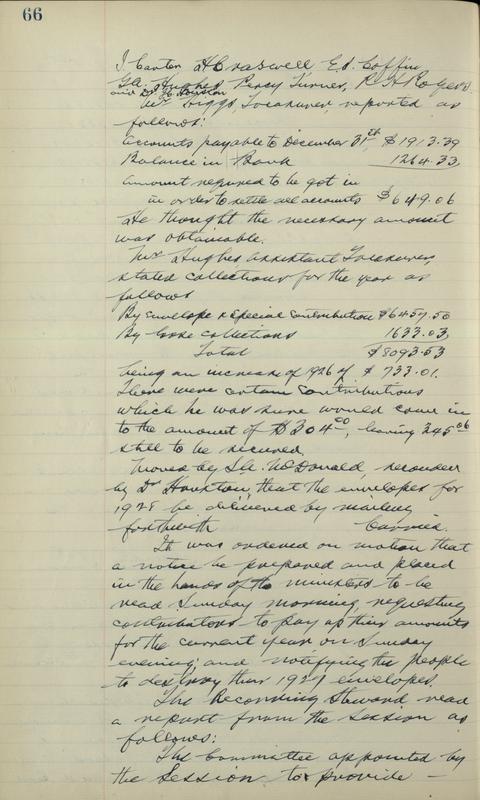 66
J. Carter H Craswell Ed. Coffin
Geo. Hughes Percy Turner, R H Rogers
and Dr. Houston
Mr Triggs Treasurer, reported as
follows:
Accounts payable to December 31st, $1913.39
Balance in Bank 1264.33
Amount required to be got in
in order to settle all accounts $649.06
He thought the necessary amount
was obtainable.
Mr Hughes Assistant Treasurer
stated collections for the year as
follows
By envelope & special contribution $6457.50
By loose collections 1633.03
Total $8093.53
being an increase of 1926 of $733.01.
There were certain contributions
which he was sure would come in
to the amount of $304.00, leaving 345.06
still to be secured.
Moved by McDonald, seconded
by Dr Houston, that the envelopes for
1928 be delivered by mailing
forthwith Carried.
It was ordered on motion that
a notice be prepared and placed
in the hands of the ministers to be
read Sunday morning, requesting
contributors to pay up their amounts
for the current year on Sunday
evening, and notifying the people
to destroy their 1927 envelopes.
The Recording Steward read
a report from the Session as
follows:
The Committee appointed by
the Session to provide —